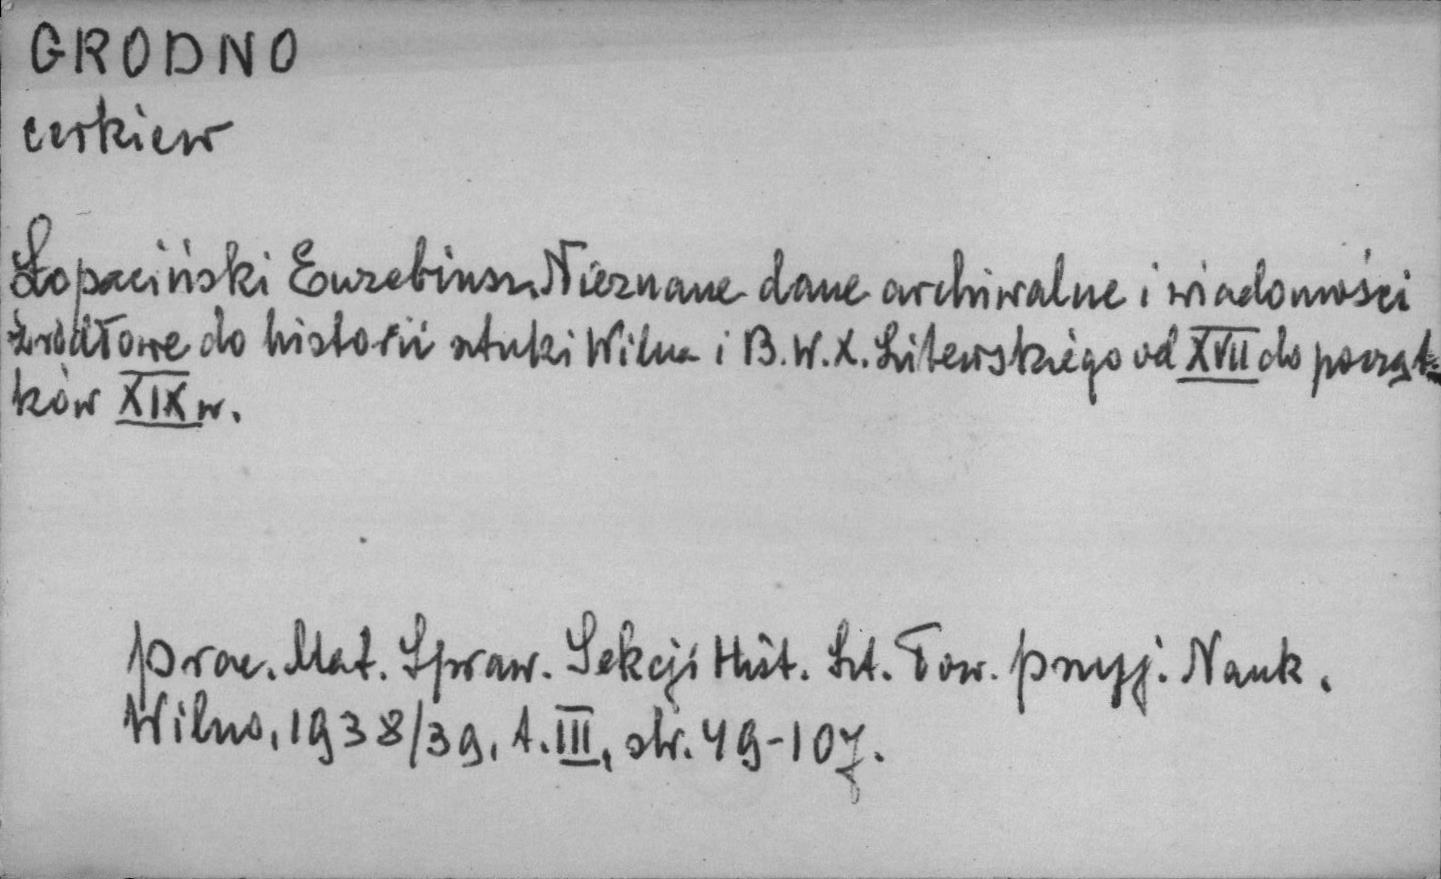 GRODNO
cerkiew
Łopaciński Euzebiusz. Nieznane dane archiwalne i wiadomości
źródłowe do historii sztuki Wilna i B.W.X. Litewskiego od XVII do począt-
ków XIX w.
Prac. Mat. Spraw. Sekcji Hist. Szt. Tow. Przyj. Nauk.
Wilno, 1938/39, t. III, str. 49-107.